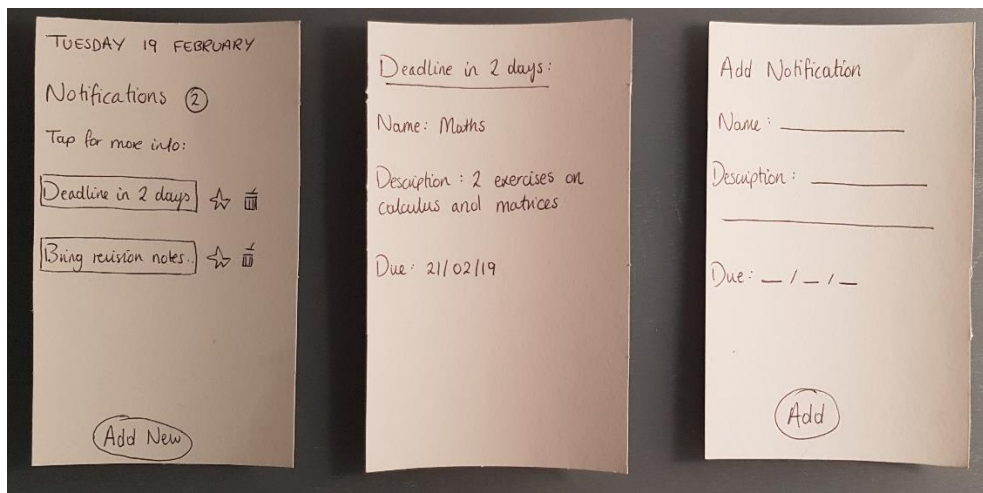 TUESDAY 19 FEBRUARY
Notifications 2
Tap for more info:
Deadline in 2 days
Bring revision notes..
Add New
Deadline in 2 days:
Name: Maths
Description: 2 exercises on
calculus and matrices
Due: 21/02/19
Add Notification
Name: ___________
Description: ___________
___________
Due: _ / _ / _
Add